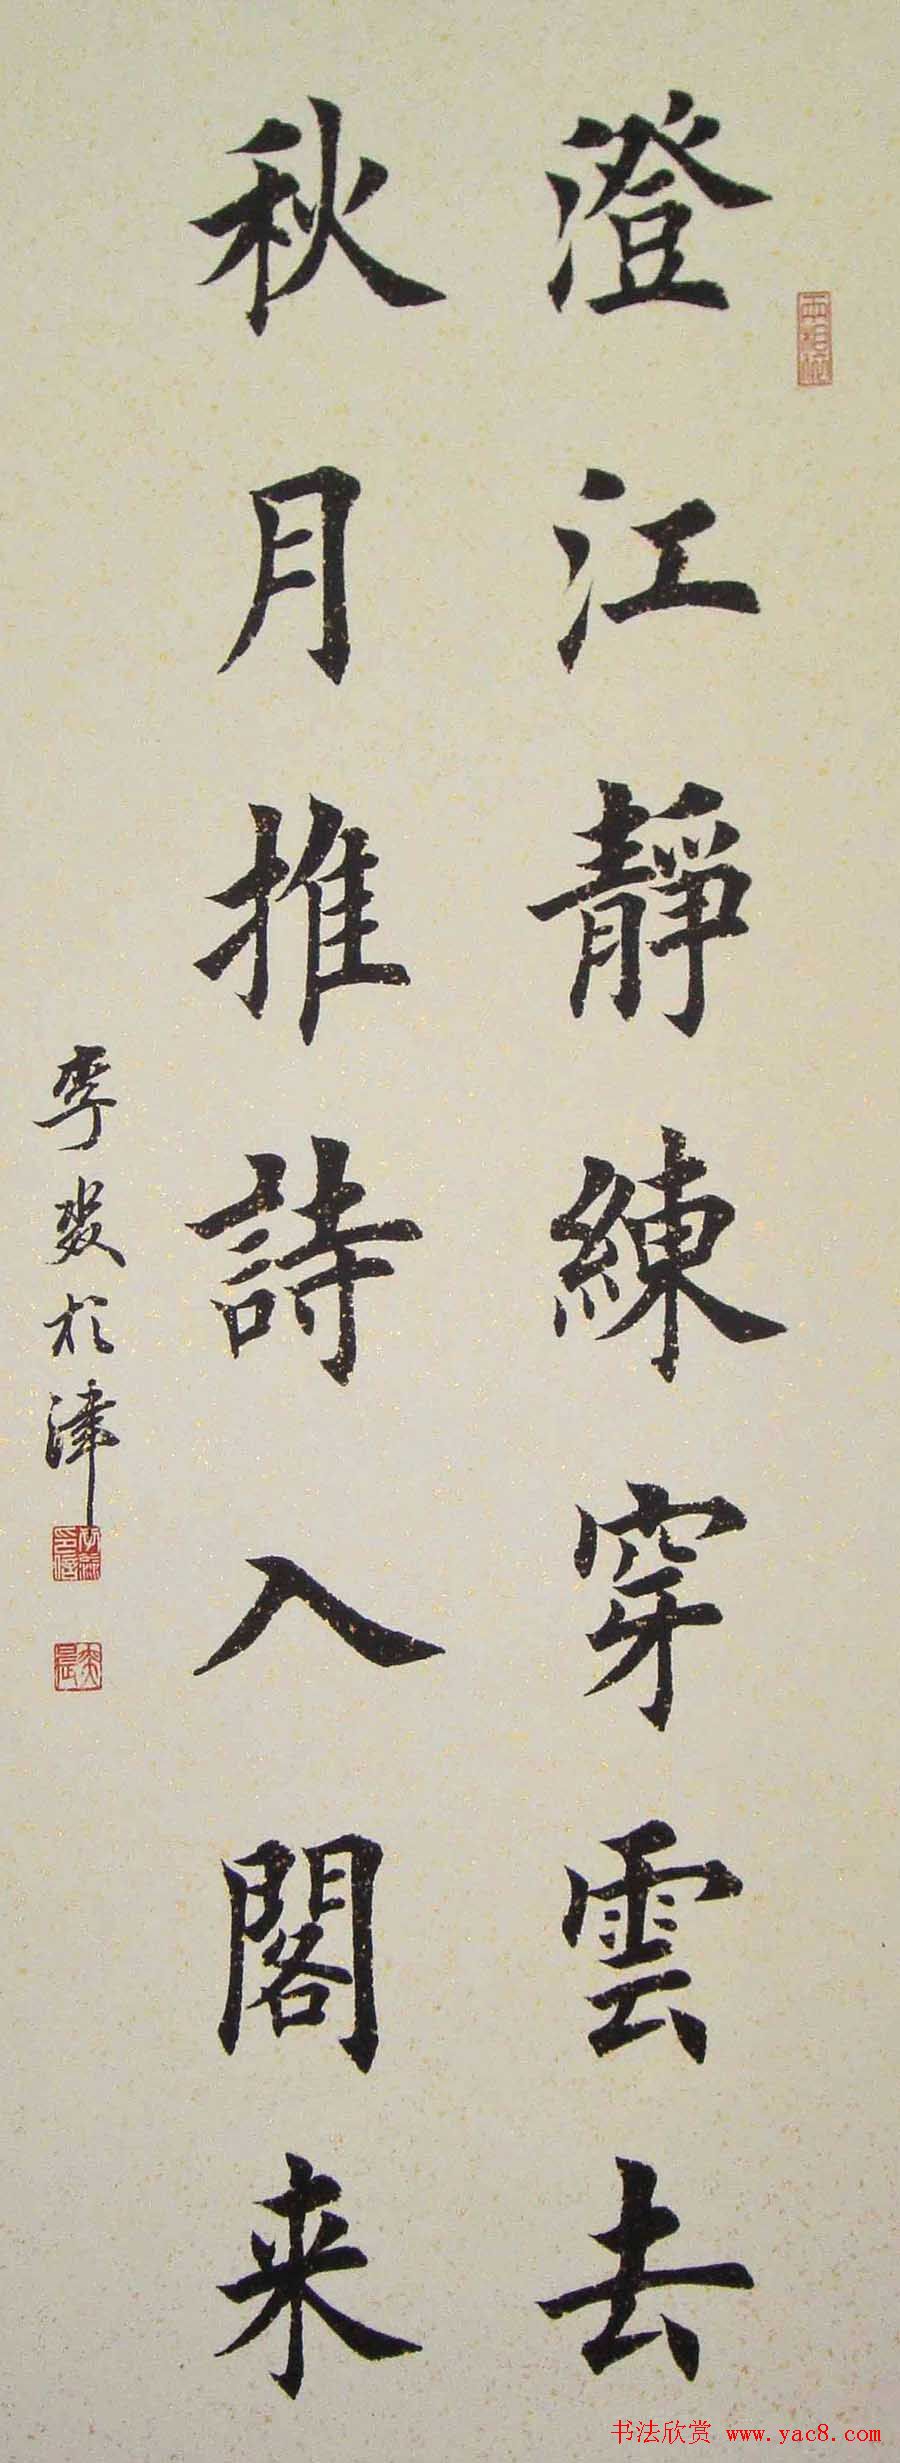 澄江靜練穿雲去
秋月推詩入閣来
李燚於津
书法欣赏 www.yac8.com